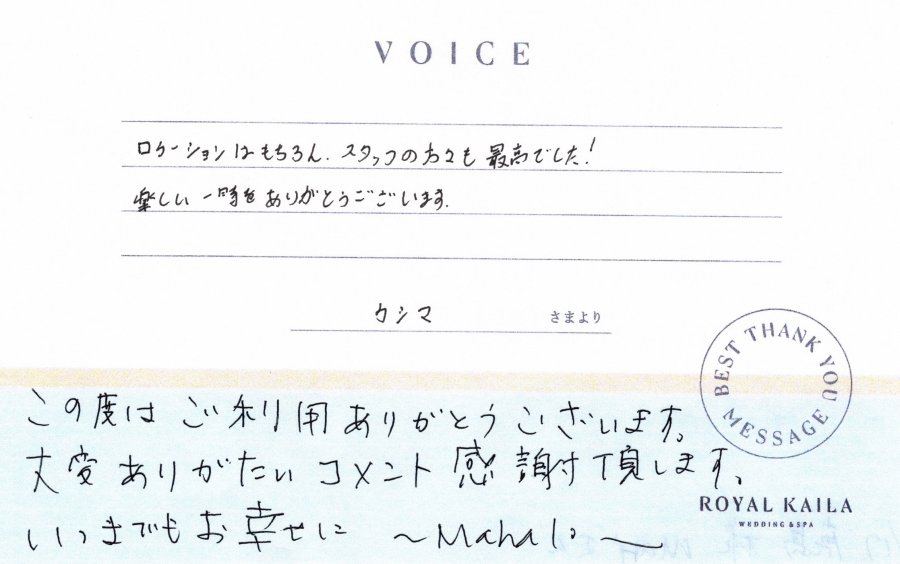 VOICE
ロケーションはもちろん、スタッフの方々も最高でした!
楽しい一時をありがとうございます.
カシマ さまより
BEST THANK YOU MESSAGE
この度はご利用ありがとうございます。
大変ありがたいコメント感謝致します。
いつまでもお幸せに ~Mahalo~
ROYAL KAILA
WEDDING & SPA